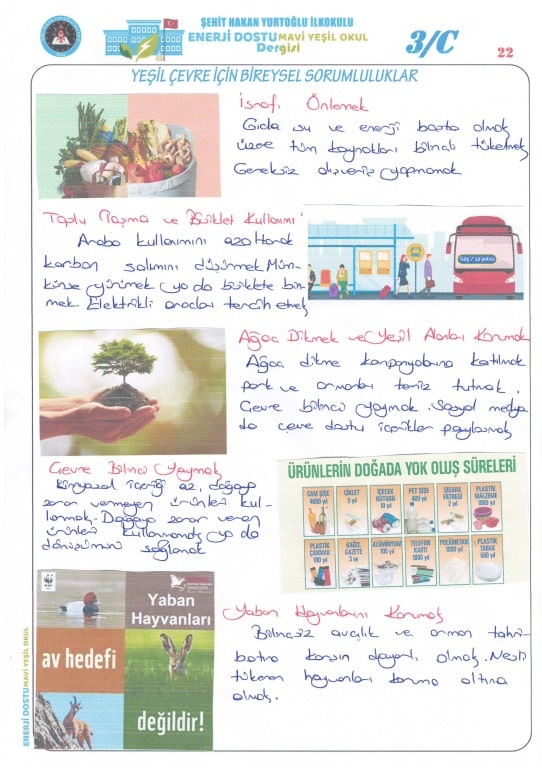 ŞEHİT HAKAN YURTOĞLU İLKOKULU
ENERJİ DOSTU MAVİ YEŞİL OKUL
Dergisi
3/C
22
YEŞİL ÇEVRE İÇİN BİREYSEL SORUMLULUKLAR
İsrafı Önlemek
Gıda su ve enerji başta olmak
üzere tüm kaynakları bilinçli tüketmek
Gereksiz alışveriş yapmamak
Toplu Taşıma ve Bisiklet Kullanımı
Araba kullanımını azaltarak
karbon salımını düşürmek Müm-
künse yürümek ya da bisiklete bin-
mek. Elektrikli araçları tercih etmek
Ağaç Dikmek ve Yeşil Alanları Korumak
Ağaç dikme kampanyalarına katılmak
park ve ormanları temiz tutmak.
Çevre bilinci yaymak. Sosyal medya
da çevre dostu içerikler paylaşmak
Çevre Bilinci Yaymak
Kimyasal içeriği az, doğaya
zarar vermeyen ürünleri kul-
lanmak. Doğaya zarar veren
ürünleri kullanmamak ya da
dönüşümünü sağlamak
ÜRÜNLERİN DOĞADA YOK OLUŞ SÜRELERİ
CAM ŞİŞE 4000 yıl
ÇİKLET 5 yıl
İÇECEK KUTUSU 10 yıl
PET ŞİŞE 400 yıl
SİGARA FİLTRESİ 2 yıl
PLASTİK MALZEME 1000 yıl
PLASTİK ÇAKMAK 100 yıl
KAĞIT, GAZETE 3 ay
ALÜMİNYUM 100 yıl
TELEFON KARTI 1000 yıl
POLİÜRETAN 1000 yıl
PLASTİK TABAK 500 yıl
WWF
Yaban
Hayvanları
av hedefi
değildir!
Yaban Hayvanlarını Korumak
Bilinçsiz avcılık ve orman tahri-
batına karşın duyarlı olmak. Nesli
tükenen hayvanları koruma altına
almak.
ENERJİ DOSTU MAVİ YEŞİL OKUL